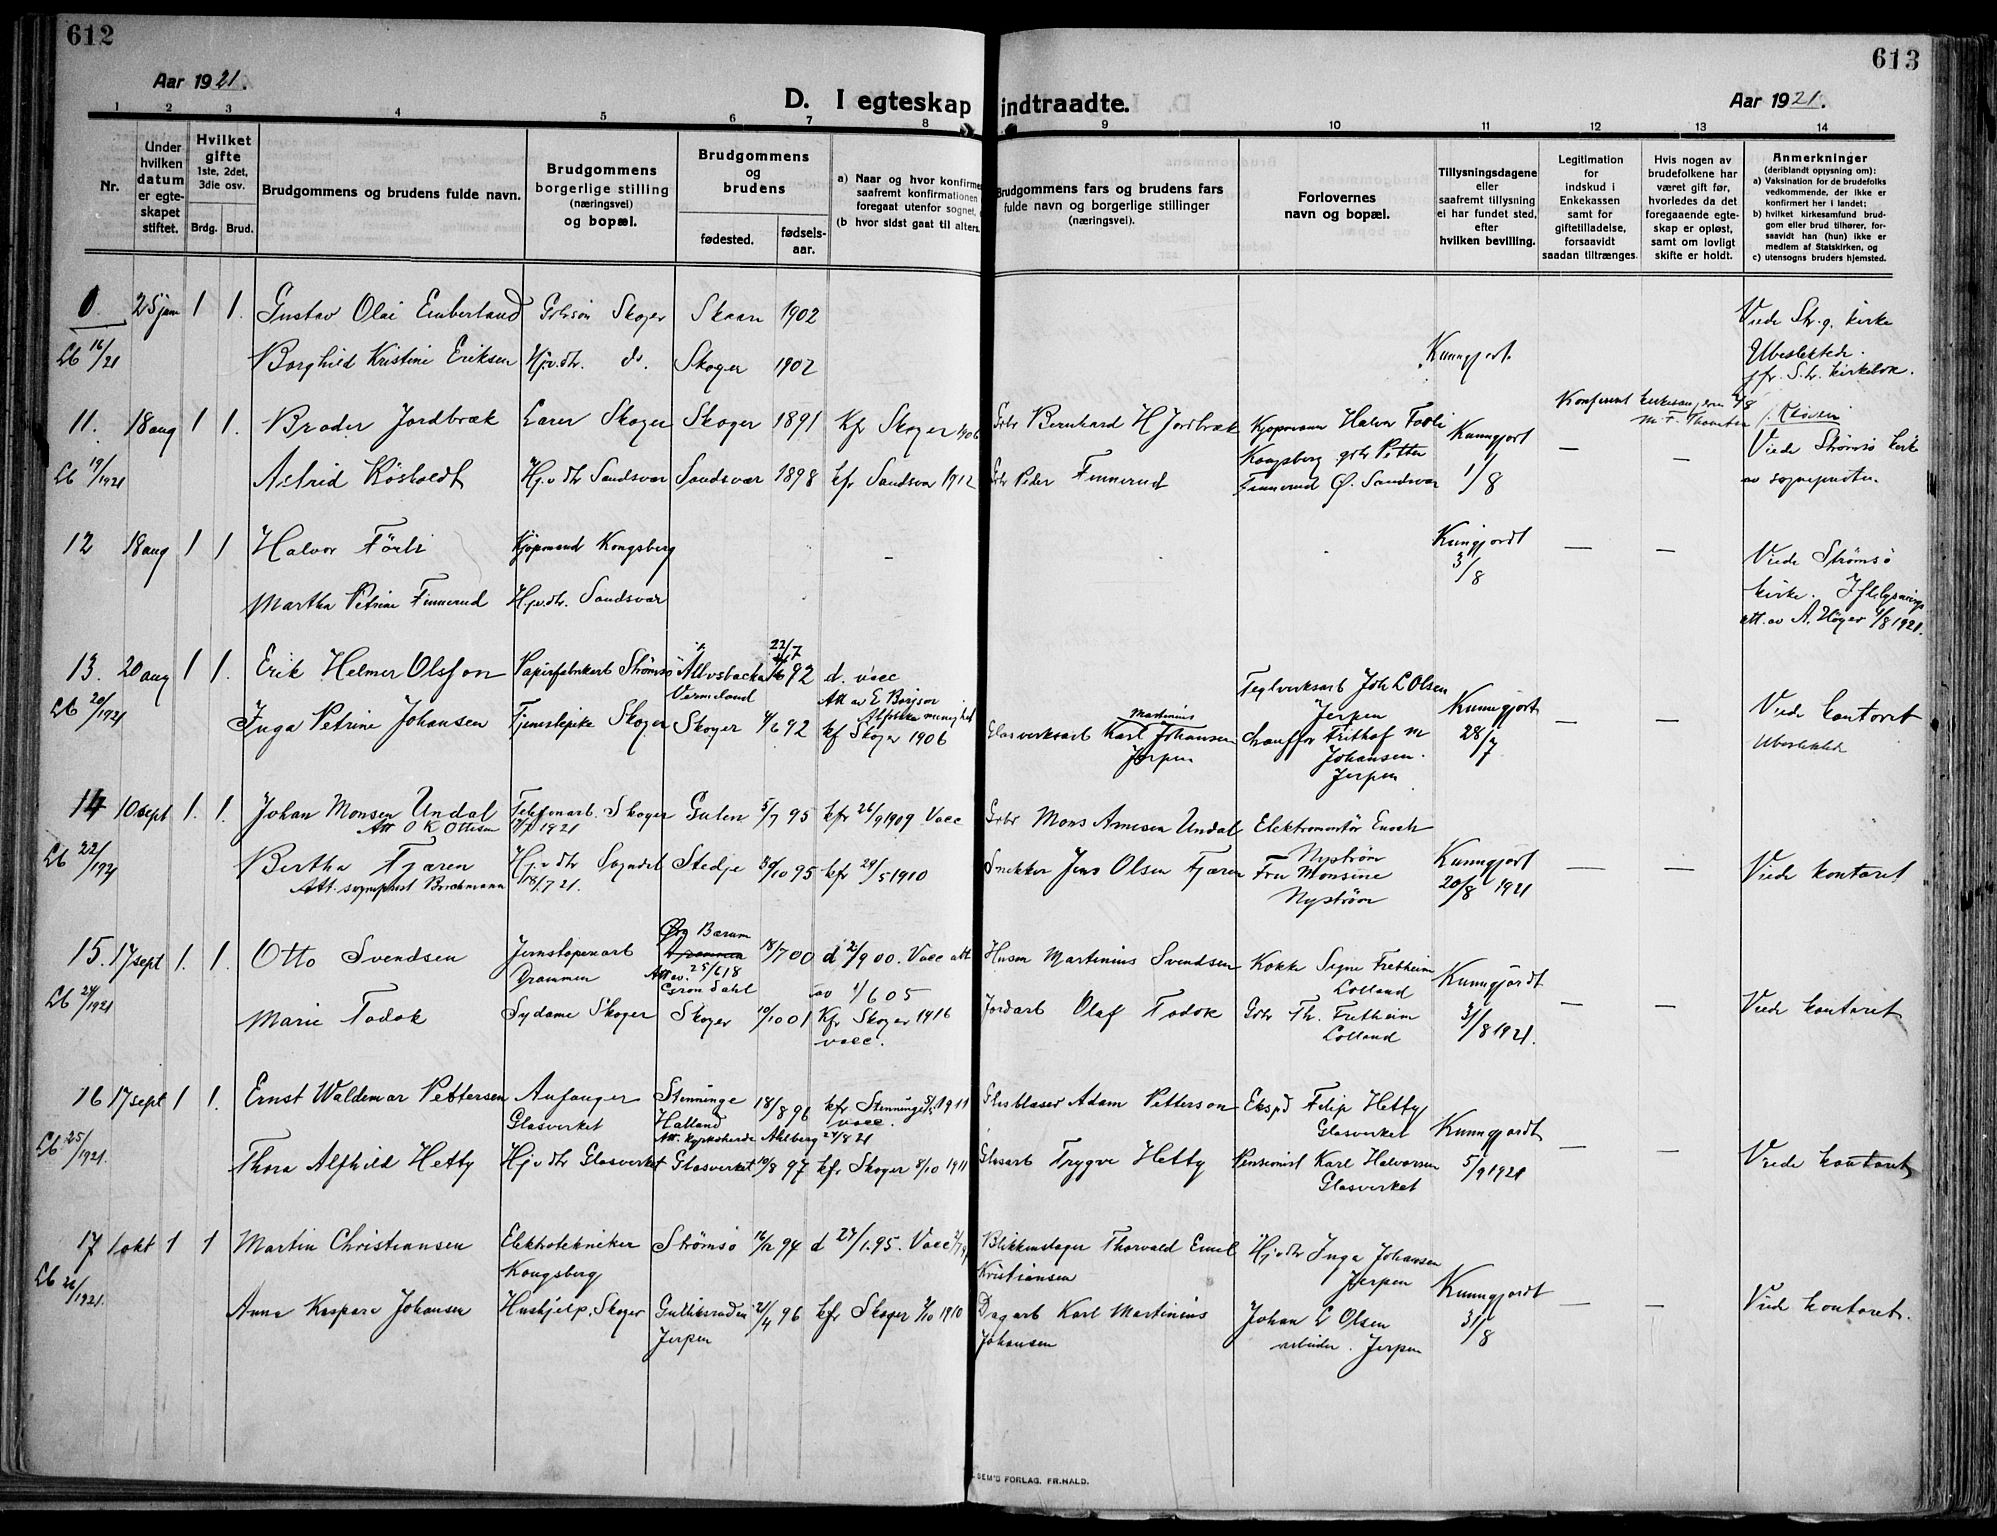 612
613
Aar 1921.
D. I egteskap indtraadte.
Aar 1921.
1 2 3 4 5 6 7 8 9 10 11 12 13 14
Nr.
Under hvilken datum er egteskapet stiftet.
Hvilket gifte 1ste, 2det, 3die osv.
Brdg. Brud.
Brudgommens og brudens fulde navn.
Brudgommens borgerlige stilling (næringsvei) og bopæl.
Brudgommens og brudens
fødested. fødselsaar.
a) Naar og hvor konfirme
saafremt konfirmationen
foregaat utenfor sognet,
(b hvor sidst gaat til alters.
Brudgommens fars og brudens fars
fulde navn og borgerlige stillinger
(næringsvei).
Forlovernes
navn og bopæl.
Tillysningsdagene
eller
saafremt tillysning
ei har fundet sted,
efter
hvilken bevilling.
Legitimation
for
indskud i
Enkekassen
samt for
giftetilladelse,
forsaavidt
saadan tiltrænges.
Hvis nogen av
brudefolkene har
været gift før,
hvorledes da det
foregaaende egte-
skap er opløst,
samt om lovligt
skifte er holdt.
Anmerkninger
(deriblandt opjysning om):
a) Vaksination for de brudefolks
vedkommende, der ikke er
konfirmert her i landet;
b) hvilket kirkesamfund brud-
gom eller brud tilhører, for-
saavidt han (hun) ikke er
medlem af Statskirken, og
c) utensogns bruders hjemsted.
0. 25 jan 1 1. Gustav Olai Emberland Skoger 1902
Viede Str. g. kirke
Lb 16/21 Borghild Kristine Eriksen Hj.v.dtr. do. Skoger 1902 Kunngjort.
Ubeslektede.
jfr. Str. kirkebok.
11. 18 aug 1 1. Broder Jordbræk Lærer Skoger Skoger 1891 Kfr Skoger 1906 Gbr Bernhard H Jordbræk Kjøpmann Halvor Kunngjort
Viede Strømsø kirke
Lb 19/1921 Astrid Hj.v.dtr Sandsvær Sandsvær 1898 kfr Sandsvær 1912 Gbr Peder Finnerud Kongsberg gbr Petter
Finnerud Ø. Sandsvær 1/8 — —
av sogneprsten.
12 18 aug 1 1 Halvor Kjøpmand Kongsberg - Kunngjordt 3/8 — —
Viede Strømsø
Martha Petrine Finnerud Hj.v.dtr. Sandsvær
kirke.
att. av A. Høyer 4/8 1921.
13. 20 aug 1 1. Erik Helmer Olsson Papirfabrikarb Strømsø Vermeland 92 d. vacc
Att av E Börjson
Lb 20/1921 Inga Petrine Johansen Tjenestepike Skoger Skoger 4/6 92 kf Skoger 1906
Glasverksarb Karl Martinius Johansen Jerpen
Teglverksarb Joh L Olsen Jerpen
chauffør Frithof M Johansen. Jerpen
Kunngjort 28/7 — —
Viede kontoret
Ubeslektede
14 10 sept 1. 1. Johan Monsen Undal Telefonarb. Skoger Gulen 5/7 95 kfr 26/9 1909 Vacc
Att O K Ottesen
Gbr Mons Arnesen Undal Elektromontör Enoch Nyström
Lb 22/1921 Bertha Fjæren Hj.v.dtr Sogndal Stedje 30/10 95 kfr 29/5 1910
Att. sogneprest
18/7 21.
Snekker Jens Olsen Fjæren Fru Monsine Nyström
Kunngjort 20/8 1921 — —
Viede kontoret
15. 17 sept 1. 1. Otto Svendsen Jernstøperiarb Drammen Bærum 18/7 00 d 2/9 00. Vacc att
Att av. 25/6 18
av 1/6 05
Martinius Svendsen Kokke Signe Fretheim Lolland
Lb 24/1921 Marie Todok Sydame Skoger Skoger 10/10 01 Kfr Skoger 1916 vacc.
Jordarb Olaf Todok Gbr Th. Fretheim Lolland
Kunngjördt 31/8 1921. — —
Viede kontoret
16 17 sept 1 1. Ernst Waldemar Pettersen Anfanger Glasverket Stenninge Halland 18/8 96 kfr Stenninge 1911 vacc.
Att. kyrkoherde Ahlberg 24/8 21
Glasblaser Adam Petterson Eksp Filip Hetty Glasverket
Lb 25/1921. Thora Alfhild Hetty Hj.v.dtr Glasverket Glasverket 10/8 97 kfr Skoger 8/10 1911
Glasarb Trygve Hetty Pensionist Karl Halvorsen Glasverket
Kunngjordt 5/9 1921 — —
Viede kontoret
17 1 okt 1 1 Martin Christiansen Elektrotekniker Kongsberg Strømsø 16/12 94 d 27/1. 95. Vacc
Blikkenslager Thorvald Emil Kristiansen Hj.v.dtr Inga Johansen Jerpen
Lb 26/1921. Anna Kaspara Johansen Hushjelp. Skoger Jerpen 21/4 96 kfr Skoger 2/10 1910
Dagarb Karl Martinius Johansen Johan L Olsen arbeider. Jerpen
Kunngjordt 31/8 — —
Viede kontoret.
SEM'S FORLAG. FR.HALD.